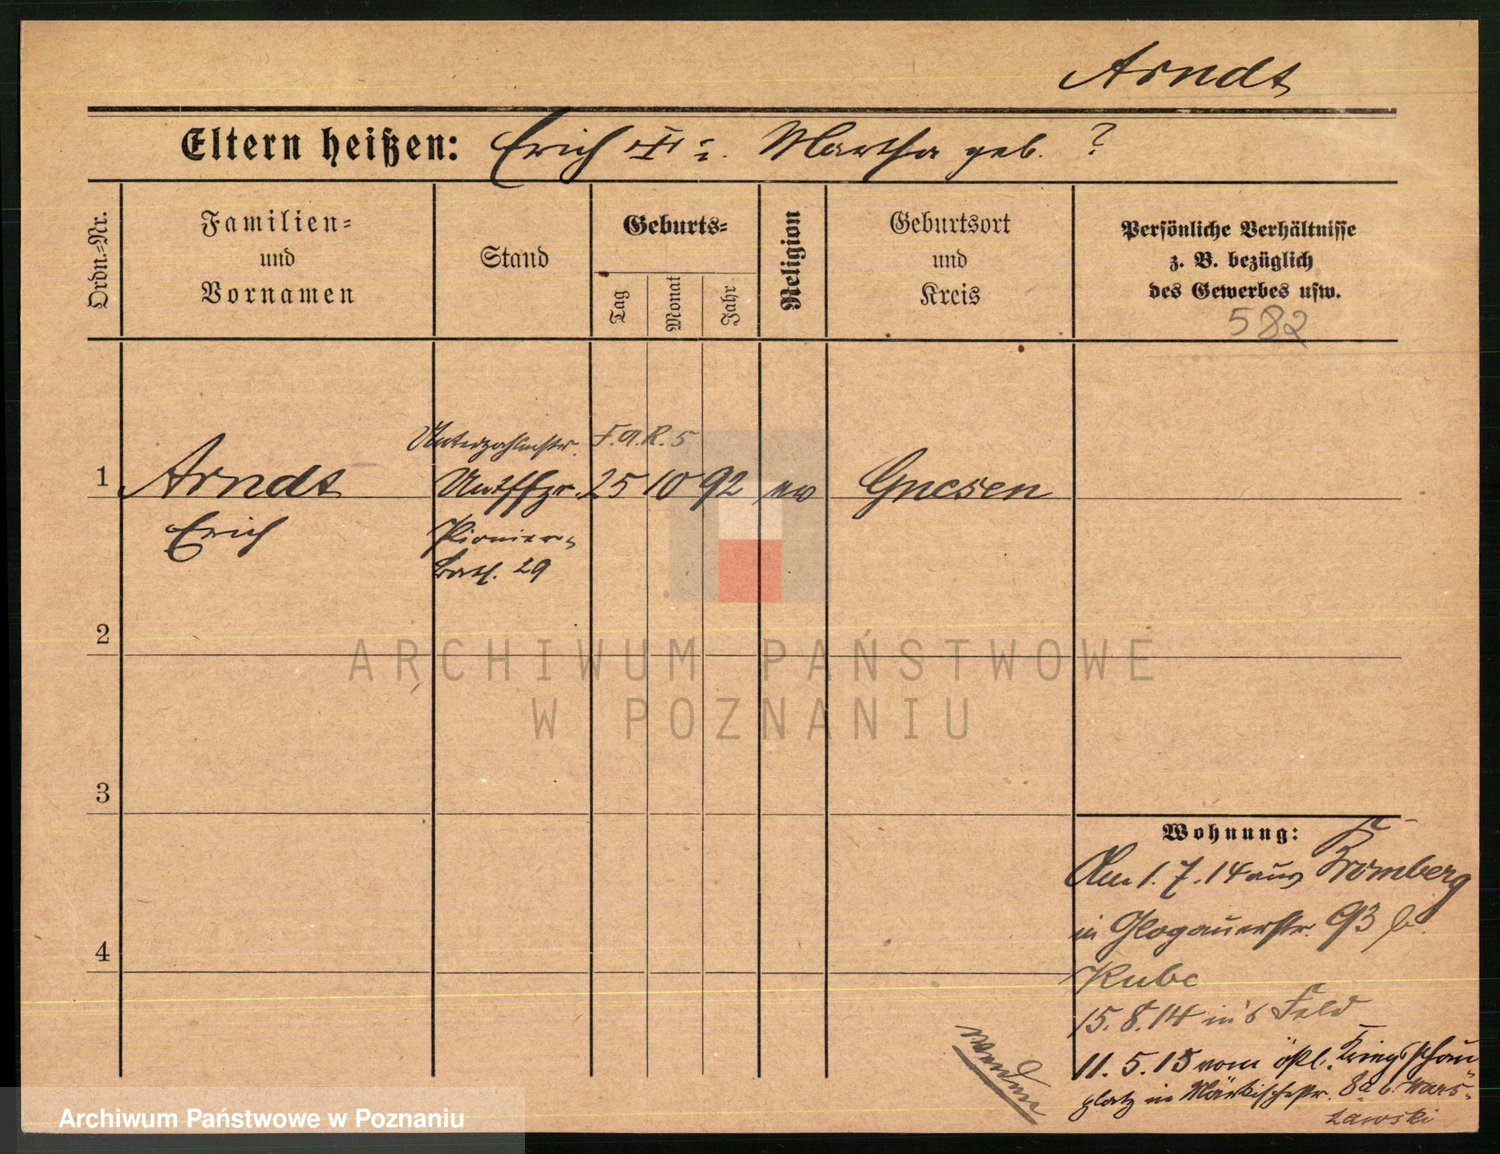 Arndt
Eltern heißen: Erich u. Martha geb. ?
Ordn.-Nr.
Familien-
und
Vornamen
Stand
Geburts-
Tag
Monat
Jahr
Religion
Geburtsort
und
Kreis
Persönliche Verhältnisse
z. B. bezüglich
des Gewerbes usw.
582
Unterzahlmstr. F.A.R. 5
1 Arndt 25 10 92 ev Gnesen
Erich Pionier-
Batl. 29
2
3
4
Wohnung:
Am 1. 7. 14 aus Bromberg
in Glogauerstr. 93 b.
Kube
15. 8. 14 in's Feld
11. 5. 15 vom östl. Kriegsschau
platz in Märkischestr. 8a b. Wars-
zawski
wenden
ARCHIWUM PAŃSTWOWE
W POZNANIU
Archiwum Państwowe w Poznaniu